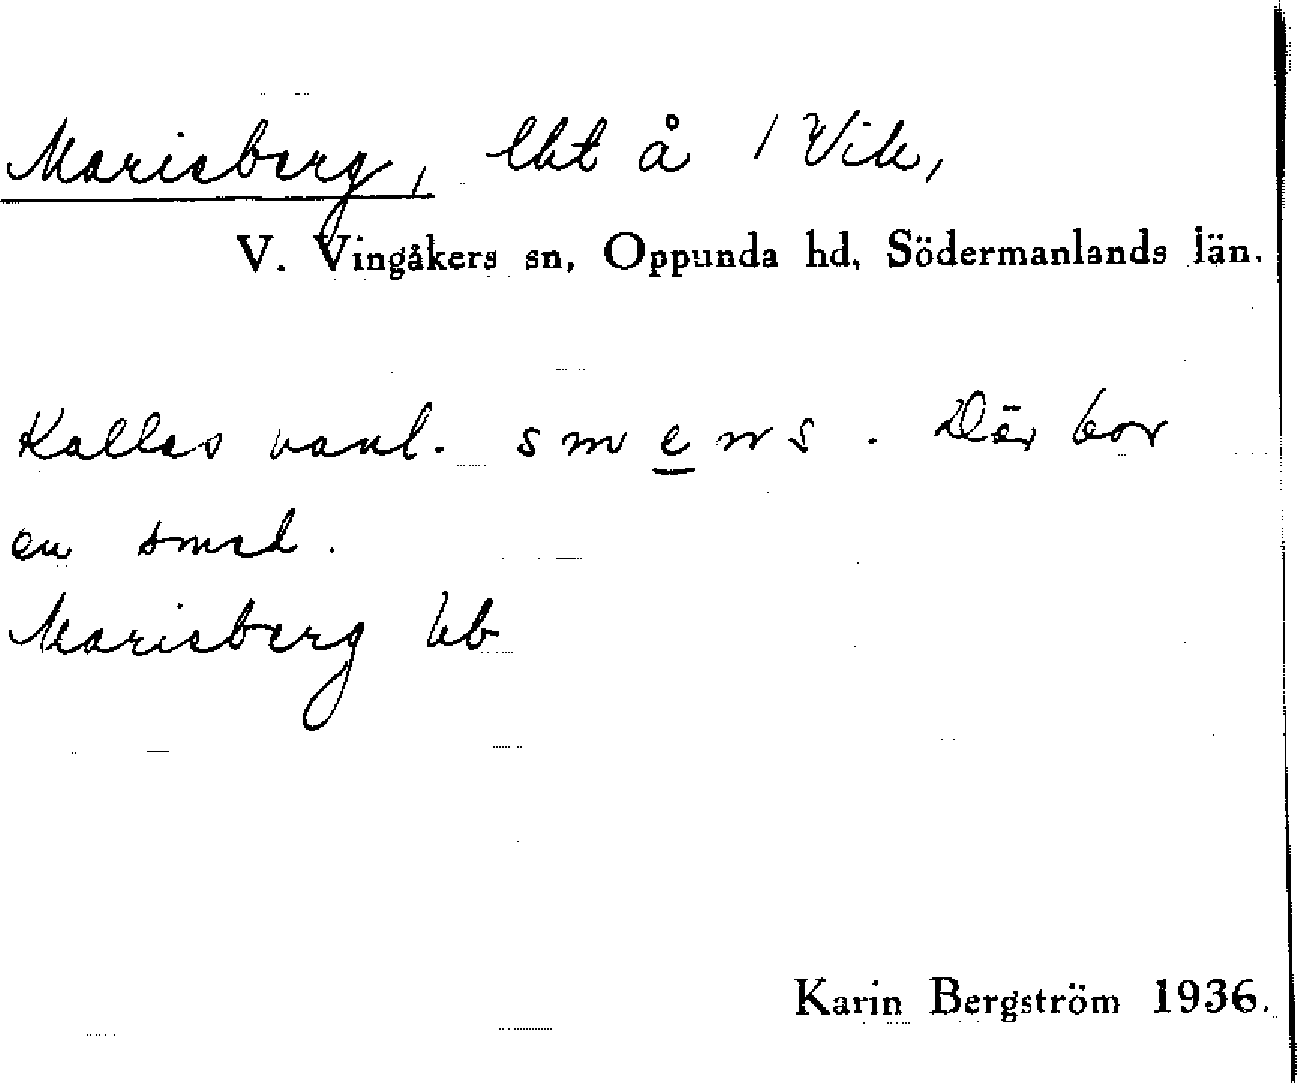 Marieberg, lht å 1 Vik,
V. Vingåkers sn, Oppunda hd, Södermanlands län.
Kallas vanl. smens. Där bor
en smed.
Marieberg kb
Karin Bergström 1936.